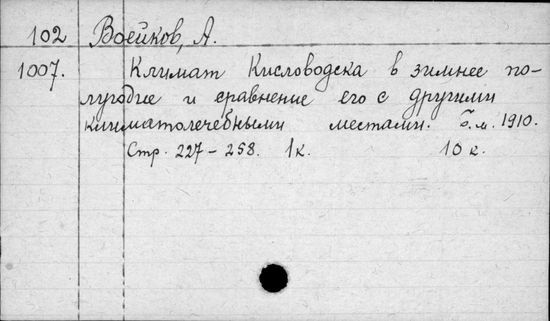 102 Воейков, А.
1007. Климат Кисловодска в зимнее по-
лугодие и сравнение его с другими
климатолечебными местами. Б.м. 1910.
Стр. 227-258. 1к. 10 к.